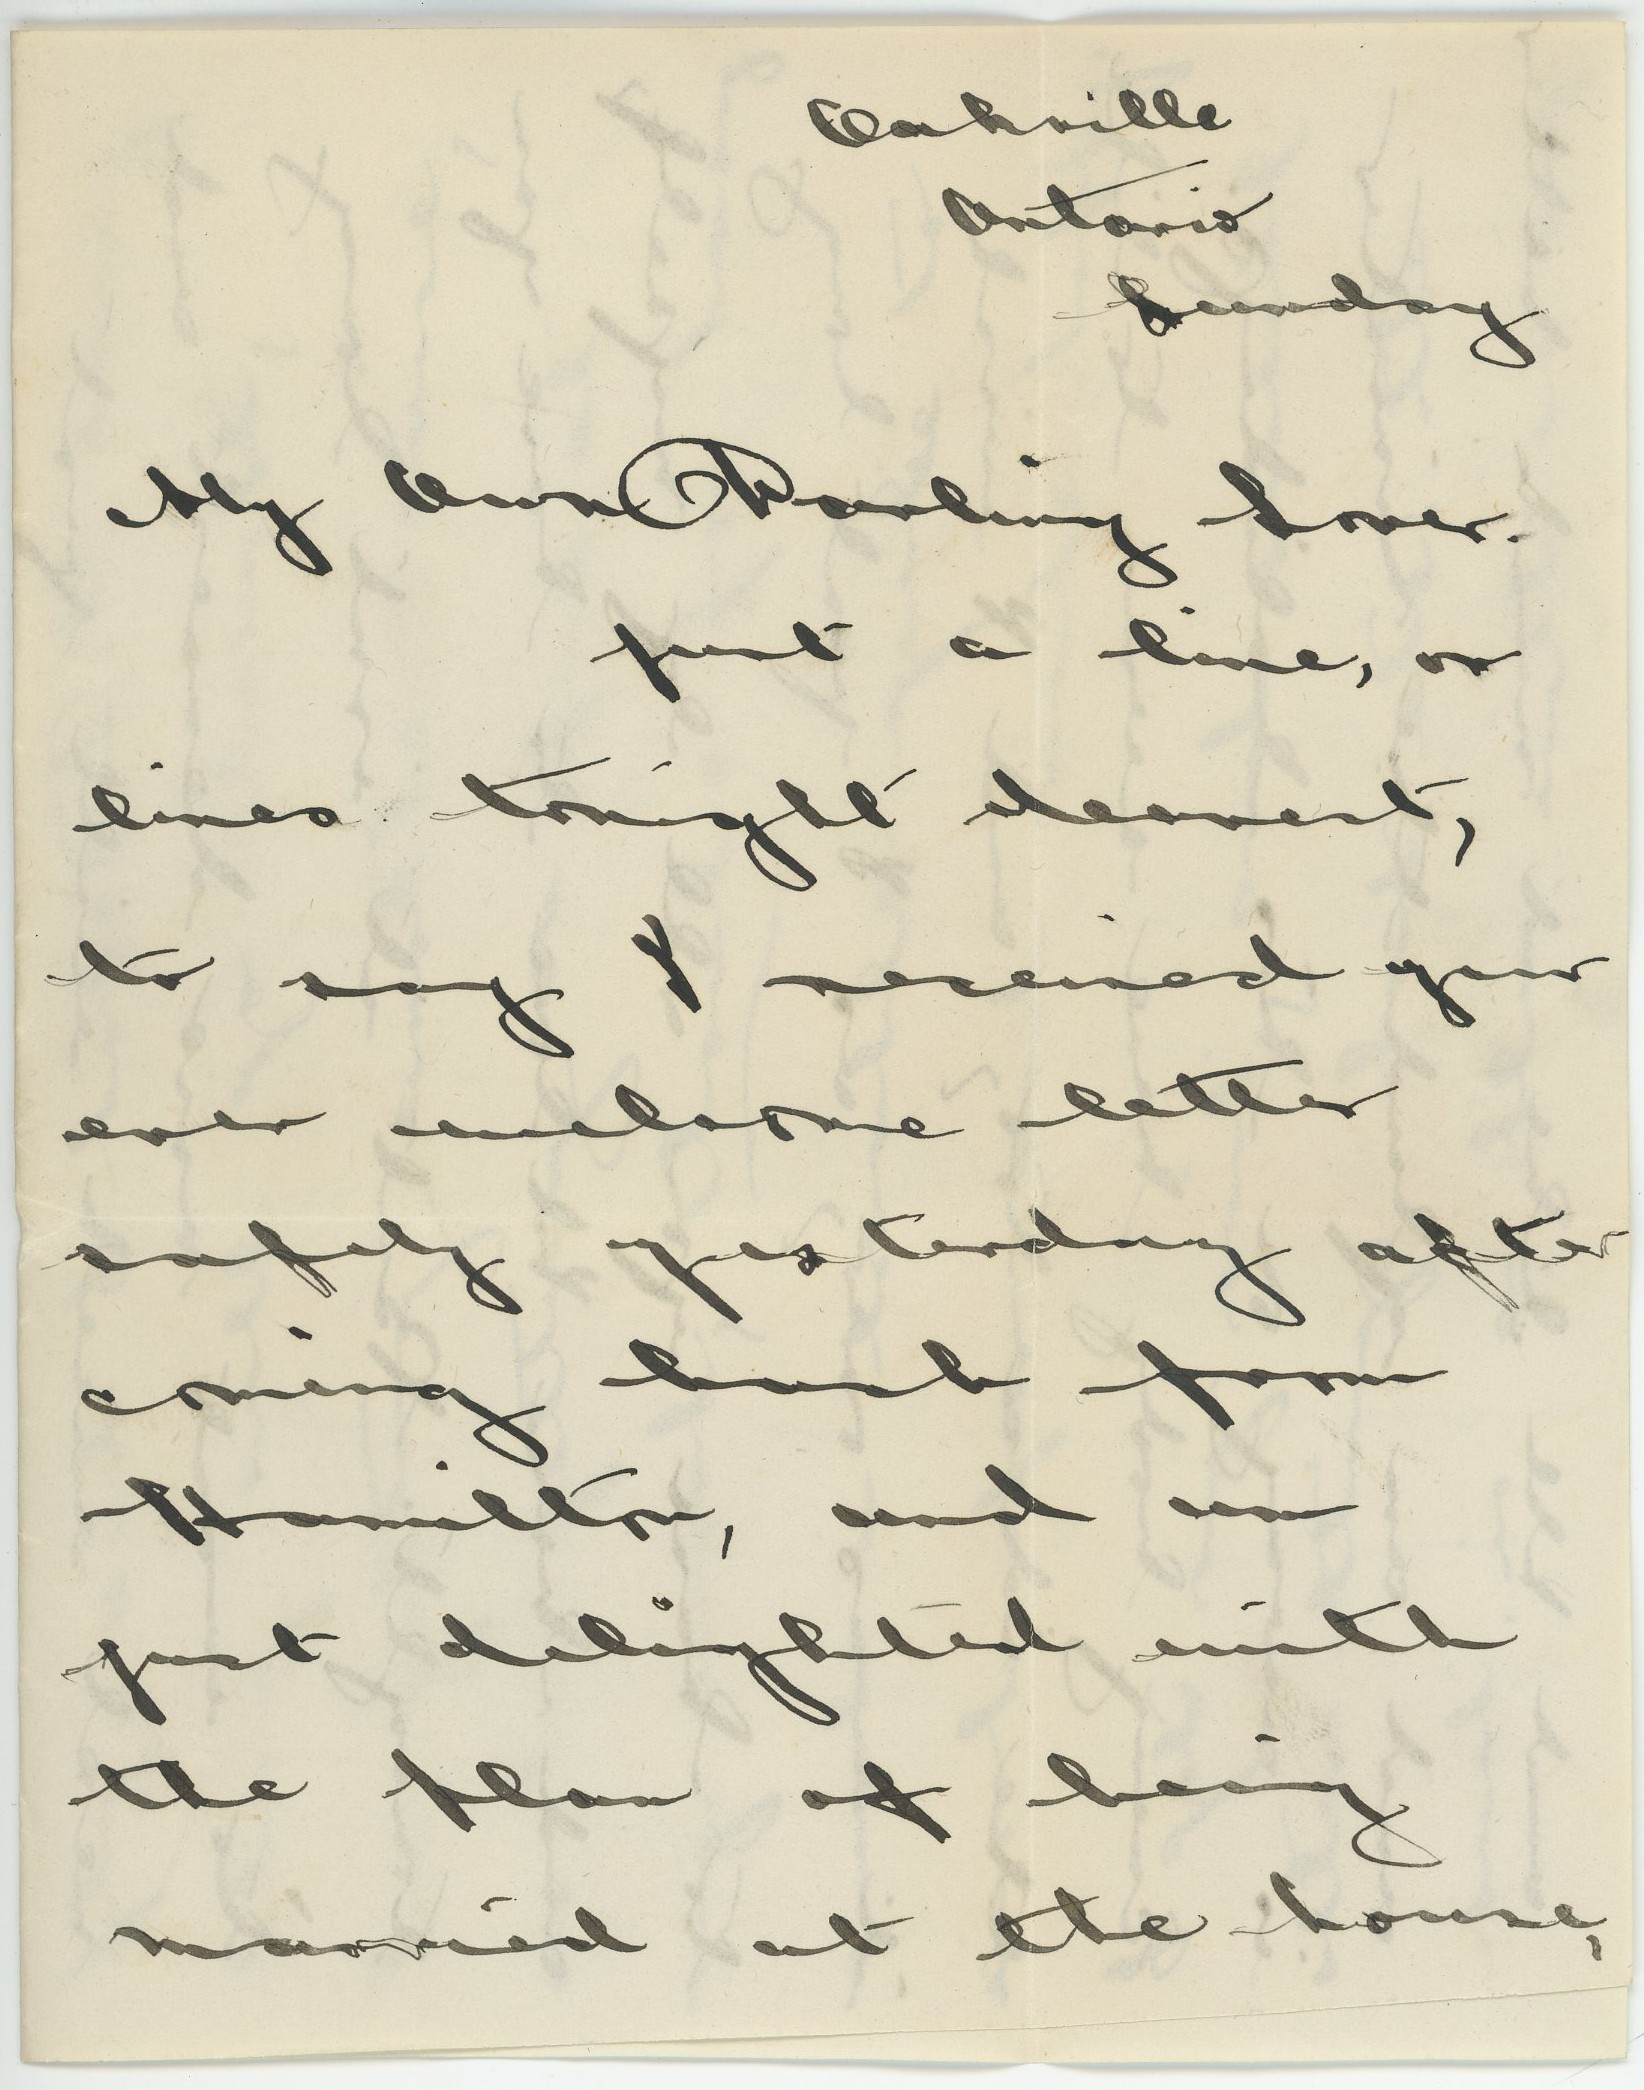 Oakville
Ontario
Sunday
My Own Darling Lover.
just a line, or
lines tonight dearest,
to say I received your
ever welcome letter
safely yesterday after
coming back from
Hamilton, and am
just delighted with
the plan of being
married at the house,